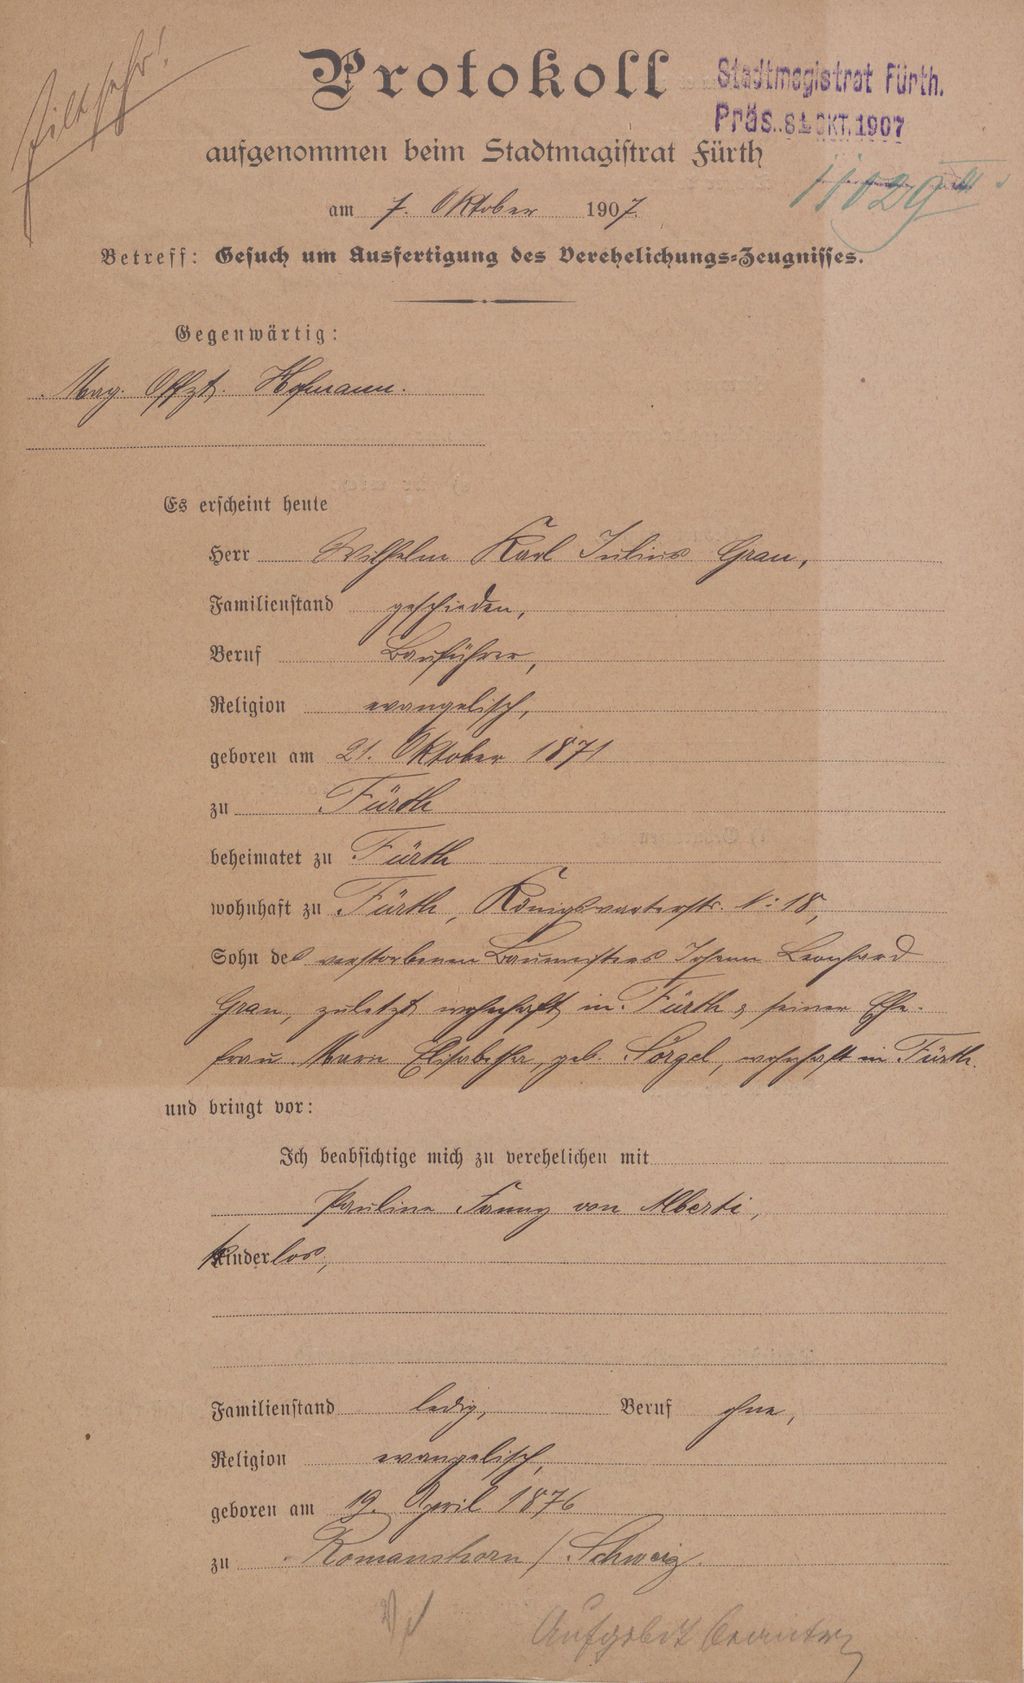 Eilt sehr!
Protokoll
Stadtmagistrat Fürth.
Präs. 8. OKT. 1907
aufgenommen beim Stadtmagistrat Fürth
11029
am 7. Oktober 1907.
Betreff: Gesuch um Ausfertigung des Verehelichungs-Zeugnisses.
Gegenwärtig:
Mag. Offzt. Hofmann.
Es erscheint heute
Herr Wilhelm Karl Julius Grau,
Familienstand geschieden,
Beruf Bauführer,
Religion evangelisch,
geboren am 21. Oktober 1871
zu Fürth
beheimatet zu Fürth
wohnhaft zu Fürth, Königswarterstr. N: 18,
Sohn des verstorbenen Baumeisters Johann Leonhard
Grau, zuletzt wohnhaft in Fürth & seiner Ehe-
frau Marie Elisabetha, geb. Sörgel, wohnhaft in Fürth.
und bringt vor:
Ich beabsichtige mich zu verehelichen mit
Pauline Fanny von Alberti,
Kinderlos,
Familienstand ledig, Beruf ohne,
Religion evangelisch,
geboren am 19. April 1876
zu Romanshorn / Schweiz.
Aufgebot